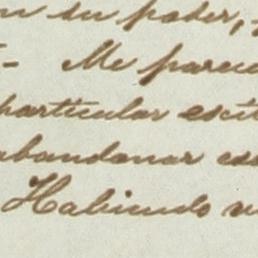 en su poder,
- Me parec
particular escit
abandonar es
Habiendo v